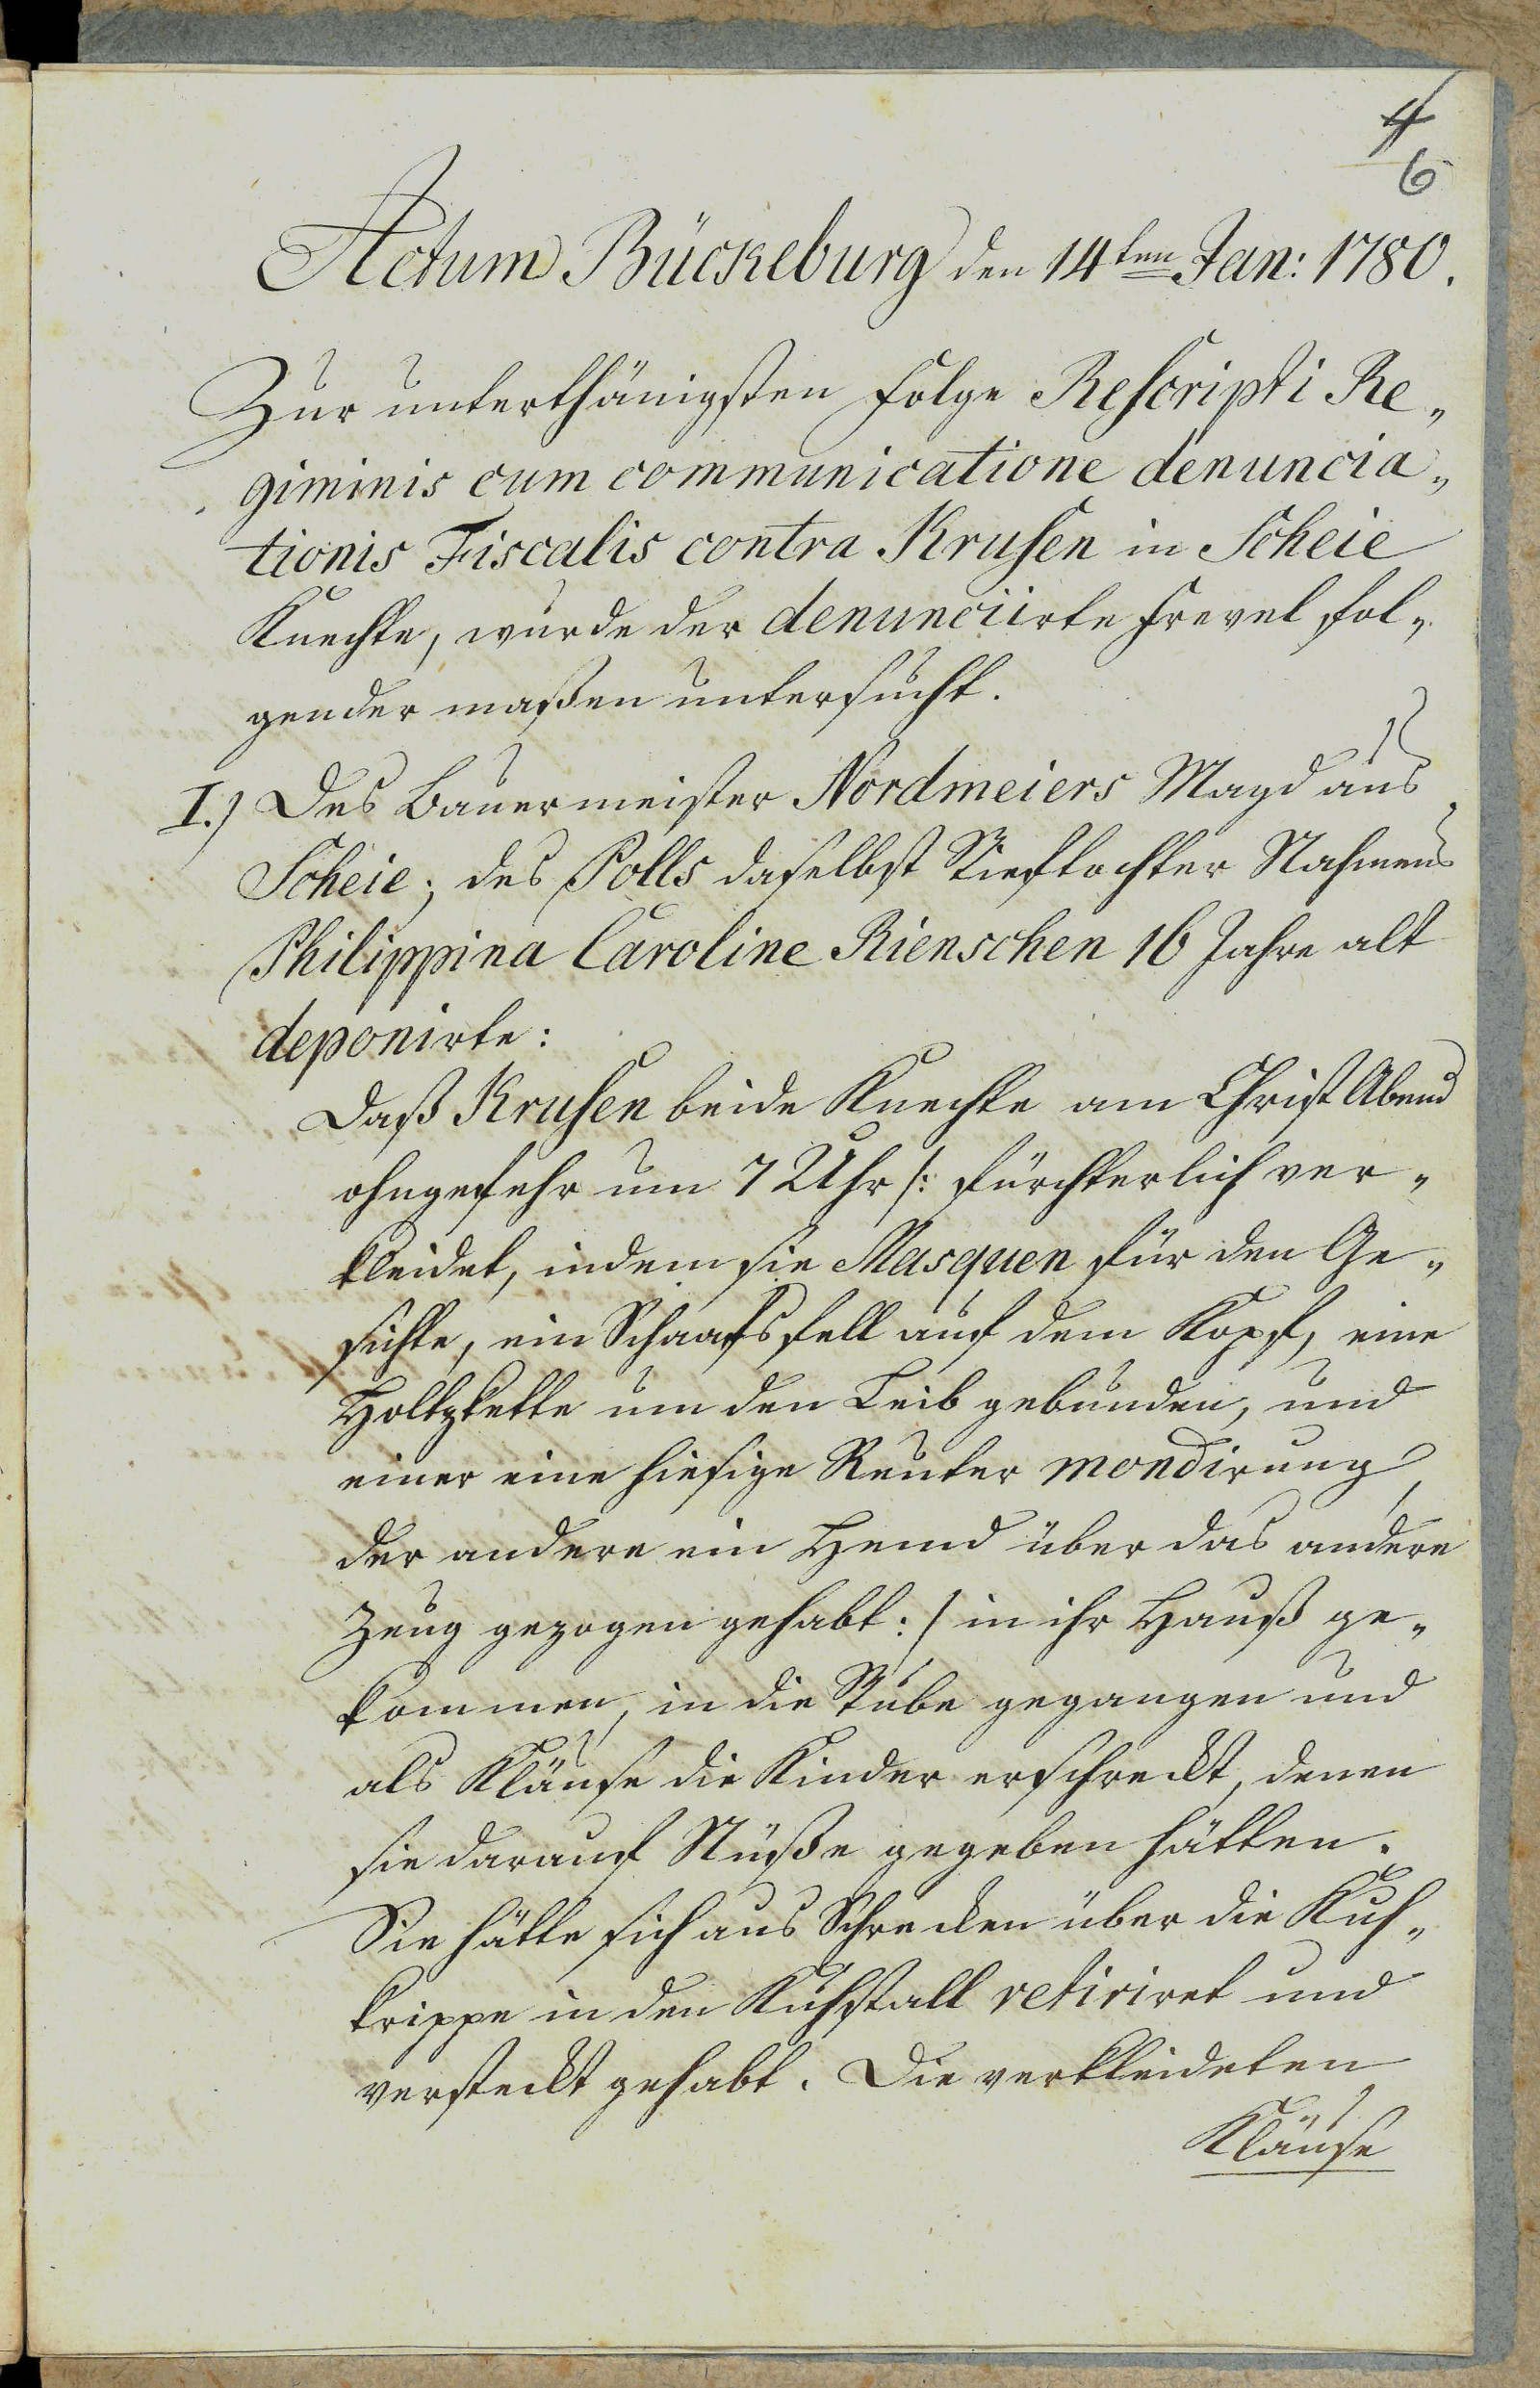 4
6
Actum Bückeburg den 14ten Jan: 1780.
Zur unterthänigsten Folge Rescripti Re„
giminis cum communicatione denuncia„
tionis Fiscalis contra Krusen in Scheie
Knechte, wurde der denunciirte Frevel fol„
gender maßen untersucht.
I.) Des Bauermeister Nordmeiers Magd aus
Scheie; des Polls daselbst Stieftochter Nahmens
Philippina Caroline Rienschen 16 Jahre alt
deponirte:
Daß Krusen beide Knechte am Christ Abend
ohngefehr um 7 Uhr /: fürchterlich ver„
kleidet, indem sie Masquen für den Ge„
sichte, ein Schaafsfell auf dem Kopf, eine
Holtzkette um den Leib gebunden, und
einer eine hiesige Reuter mondirung,
der andere ein Hemd über das andere
Zeug gezogen gehabt :/ in ihr Hauß ge„
kommen, in die Stube gegangen und
als Kläuse die Kinder erschreckt, denen
sie darauf Nüße gegeben hätten.
Sie hätte sich aus Schrecken über die Kuh„
krippe in den Kuhstall retiriret und
versteckt gehabt. Die verkleideten
Kläuse